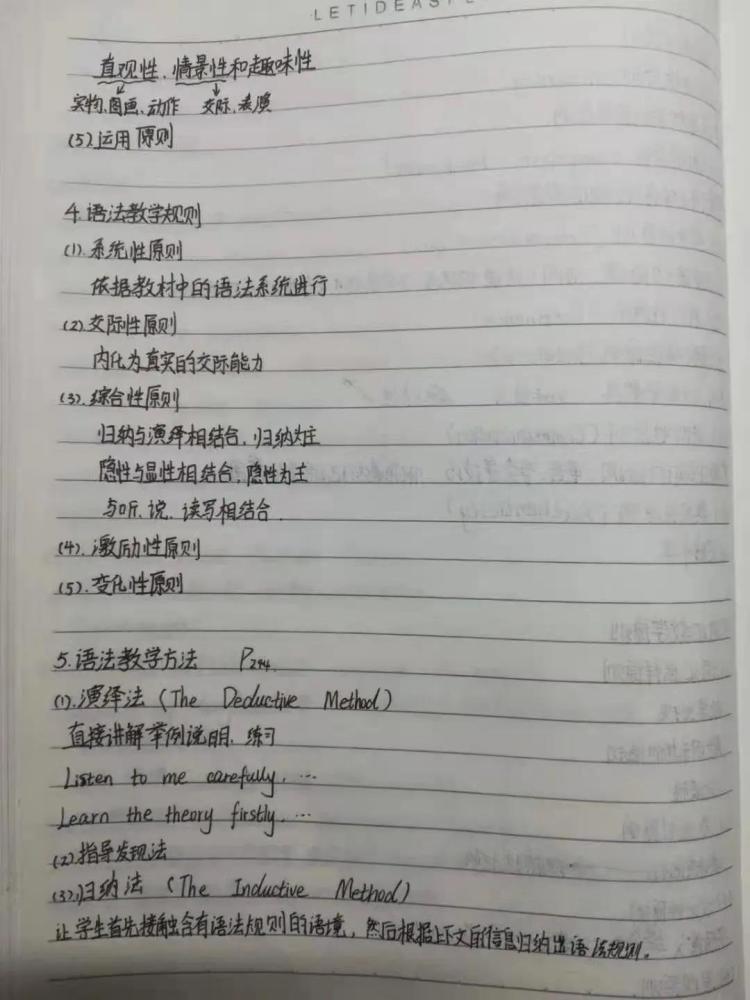 LETIDEASFL
直观性、情景性和趣味性
实物、图画、动作 交际、表演
(5).运用原则
4.语法教学规则
(1).系统性原则
依据教材中的语法系统进行
(2).交际性原则
内化为真实的交际能力
(3).综合性原则
归纳与演绎相结合,归纳为主
隐性与显性相结合,隐性为主
与听、说、读写相结合.
(4).激励性原则
(5).变化性原则
5.语法教学方法 P244.
(1).演绎法 (The Deductive Method)
直接讲解举例说明、练习
Listen to me carefully. ...
Learn the theory firstly. ...
(2).指导发现法
(3).归纳法 (The Inductive Method)
让学生首先接触含有语法规则的语境,然后根据上下文的信息归纳出语法规则。